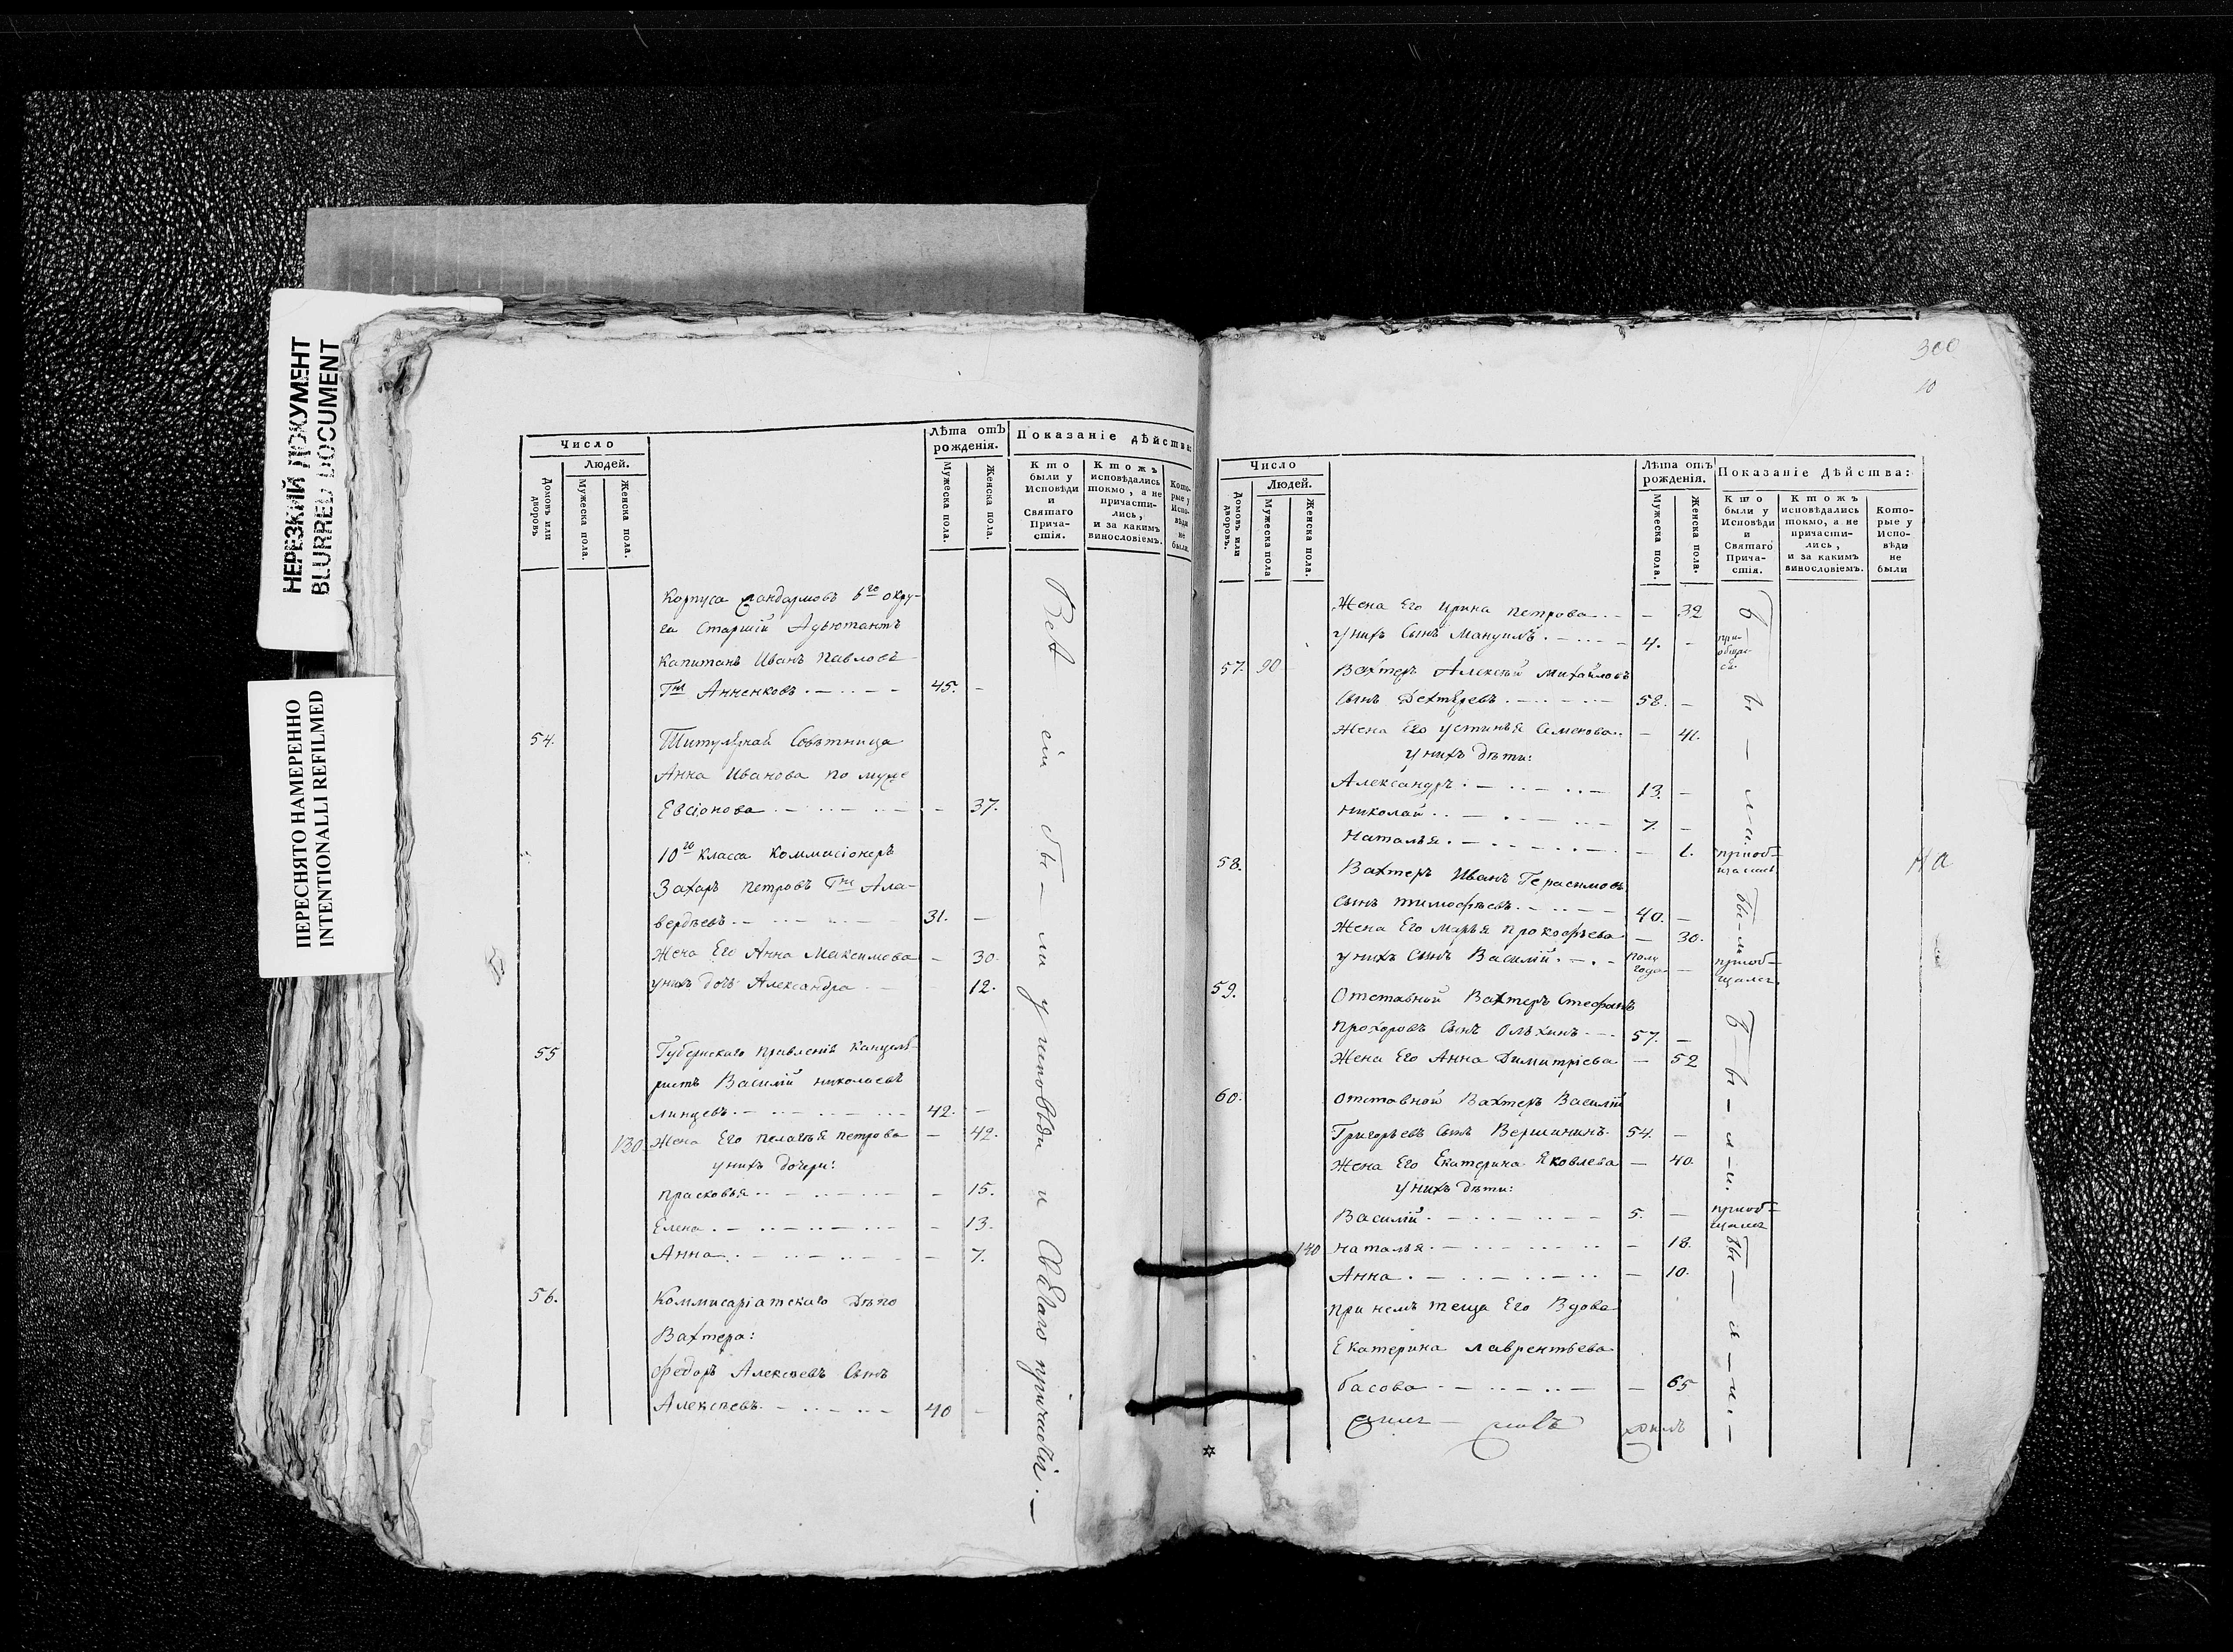 НЕРЕЗКИЙ ДОКУМЕНТ
BLURRED DOCUMENT
ПЕРЕСНЯТО НАМЕРЕННО
INTENTIONALLI REFILMED
Число
Людей.
Домовъ или дворовъ
Мужеска пола.
Женска пола.
Лѣта отъ рожденія.
Мужеска пола.
Женска пола.
Показаніе дѣйства:
Кто были у Исповѣди и Святаго Прича-стія.
Ктожъ исповѣдались токмо, а не причасти-лись, и за какимъ винословіемъ.
Кото-рые у Испо-вѣди не были.
Корпуса жандармовъ 6го окру-
га Старшій Адъютантъ
Капитанъ Иванъ Павловъ
Гнъ Анненковъ 45. -
54. Титулярная Совѣтница
Анна Иванова по муже
Евсіонова - 37.
10го класса Коммисіонеръ
Захаръ Петровъ Гнъ Ала-
вердѣевъ 31. -
Жена Его Анна Максимова - 30.
у нихъ дочь Александра 12.
55 Губернскаго Правленія Канцеля-
ристъ Василій Николаевъ
42. -
130 Жена Его Пелагѣя Петрова - 42.
у нихъ дочери:
Прасковья - 15.
Елена - 13.
Анна - 7.
56. Коммисаріатскаго Депо
Вахтера:
Федоръ Алексѣевъ Сынъ
Алексѣевъ 40 -
Всѣ сіи бы-ли у исповѣди и Святаго причастія.
300
10
Число
Людей.
Домовъ или дворовъ.
Мужеска пола
Женска пола.
Лѣта отъ рожденія.
Мужеска пола.
Женска пола.
Показаніе Дѣйства:
Кто были у Исповѣди и Святаго Прича-стія.
Ктожъ исповѣдались токмо, а не причасти-лись, и за какимъ винословіемъ.
Кото-рые у Испо-вѣди не были
Жена Его Ирина Петрова - 32
у нихъ Сынъ Мануилъ 4. -
57. 90 Вахтеръ Алексѣй Михайловъ
Сынъ Дехтяревъ 58. -
Жена Его Устинья Семенова - 41.
у нихъ дѣти:
Александръ 13. -
Николай 7. -
Наталья - 1.
58. Вахтеръ Иванъ Герасимовъ
Сынъ Тимофѣевъ 40. -
Жена Его Марья Прокофьева - 30.
у нихъ Сынъ Василій полу года -
59. Отставной Вахтеръ Стефанъ
Прохоровъ Сынъ Олѣхинъ 57. -
Жена Его Анна Димитріева - 52
60. Отставной Вахтеръ Василій
Григорьевъ Сынъ Вершининъ 54. -
Жена Его Екатерина Яковлева - 40.
у нихъ дѣти:
Василій 5. -
140 Наталья - 18.
Анна - 10.
При немъ теща Его Вдова
Екатерина Лаврентьева
Басова - 65
На